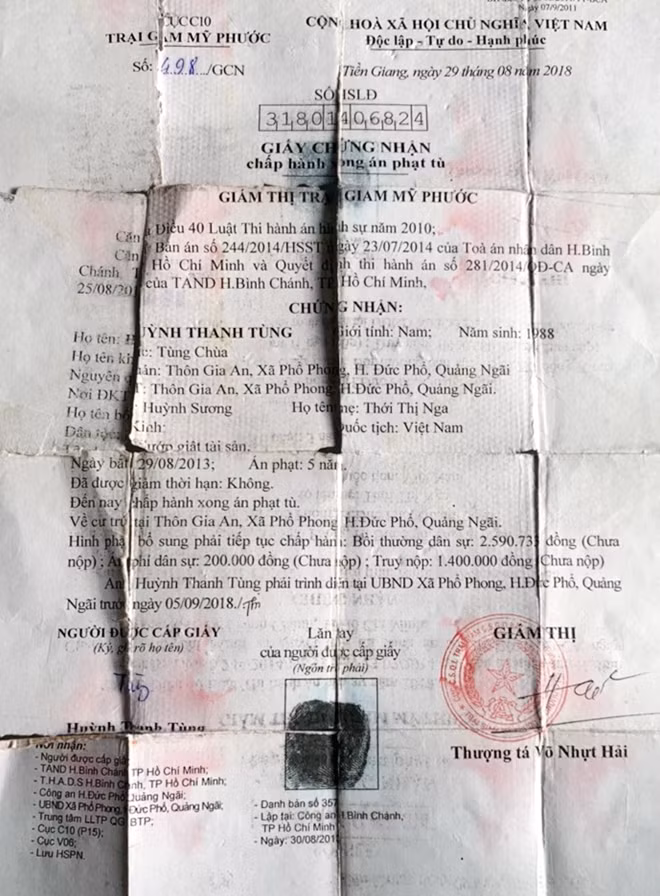 N.gày 07/9/2011
ỤC C10
TRẠI GIAM MỸ PHƯỚC
CỘNG HOÀ XÃ HỘI CHỦ NGHĨA VIỆT NAM
Độc lập - Tự do - Hạnh phúc
Số: 498.../GCN
Tiền Giang, ngày 29 tháng 08 năm 2018
SỐ HSLĐ
3180140 6824
GIẤY CHỨNG NHẬN
chấp hành xong án phạt tù
GIÁM THỊ TRẠI GIAM MỸ PHƯỚC
Căn Điều 40 Luật Thi hành án hình sự năm 2010;
Căn Bản án số 244/2014/HSST ngày 23/07/2014 của Toà án nhân dân H.Bình
Chánh, T Hồ Chí Minh và Quyết định thi hành án số 281/2014/QĐ-CA ngày
25/08/20 của TAND H.Bình Chánh, TP. Hồ Chí Minh,
CHỨNG NHẬN:
Họ tên: HUỲNH THANH TÙNG Giới tính: Nam; Năm sinh: 1988
Họ tên kh c: Tùng Chùa
Nguyên q án: Thôn Gia An, Xã Phổ Phong, H. Đức Phổ, Quảng Ngãi
Nơi ĐKT T: Thôn Gia An, Xã Phổ Phong H.Đức Phổ, Quảng Ngãi.
Họ tên b Huỳnh Sương Họ tên mẹ: Thới Thị Nga
Dân tộc Kinh: Quốc tịch: Việt Nam
ướp giật tài sản.
Ngày bắt 29/08/2013; Án phạt: 5 năm.
Đã được giảm thời hạn: Không.
Đến nay chấp hành xong án phạt tù.
Về cư trú tại Thôn Gia An, Xã Phổ Phong H.Đức Phổ, Quảng Ngãi.
Hình phạt bổ sung phải tiếp tục chấp hành: Bồi thường dân sự: 2.590.735 đồng (Chưa
nộp) ; Án phí dân sự: 200.000 đồng (Chưa nộp) ; Truy nộp: 1.400.000 đồng (Chưa nộp)
Anh Huỳnh Thanh Tùng phải trình diện tại UBND Xã Phổ Phong, H.Đức Phổ, Quảng
Ngãi trước ngày 05/09/2018./.
NGƯỜI ĐƯỢC CẤP GIẤY
(Ký, ghi rõ họ tên)
Lăn tay
của người được cấp giấy
(Ngón trỏ phải)
GIÁM THỊ
Tùng
Huỳnh Thanh Tùng
Thượng tá Võ Nhựt Hải
Nơi nhận:
- Người được cấp giấy
- TAND H.Bình Chánh, TP Hồ Chí Minh;
- T.H.A.D.S H.Bình Chánh, TP Hồ Chí Minh;
- Công an H.Đức Phổ, Quảng Ngãi;
- UBND Xã Phổ Phong, H.Đức Phổ, Quảng Ngãi;
- Trung tâm LLTP QG BTP;
- Cục C10 (P15);
- Cục V06;
- Lưu HSPN.
- Danh bản số 357
- Lập tại: Công an H.Bình Chánh,
TP Hồ Chí Minh
- Ngày: 30/08/201